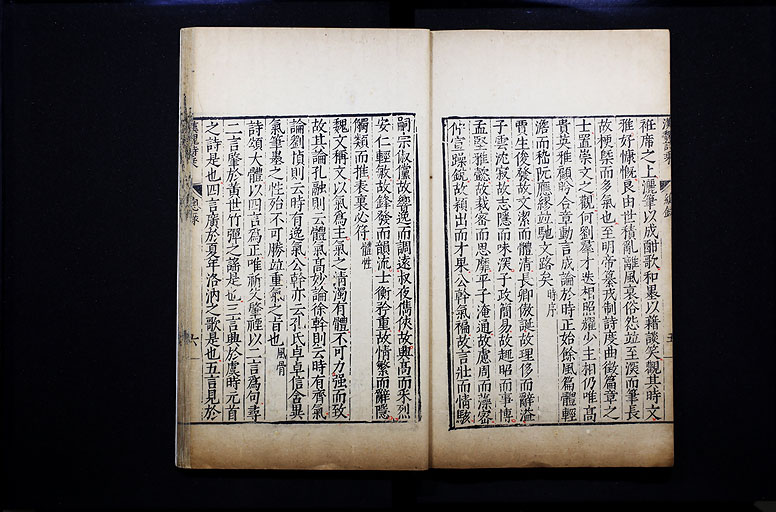 袵席之上灑筆以成酣歌和墨以藉談笑觀其時文
雅好慷慨良由世積亂離風衰俗怨竝至深而筆長
故梗槩而多氣也至明帝纂戎制詩度曲徵篇章之
士置崇文之觀何劉羣才迭相照耀少主相仍唯高
貴英雅顧盼合章動言成論於時正始餘風篇體輕
澹而嵇阮應繆竝馳文路矣 時序
賈生俊發故文潔而體清長卿傲誕故理侈而辭溢
子雲沈寂故志隱而味深子政簡易故趣昭而事博
孟堅雅懿故裁密而思靡平子淹通故慮周而藻密
仲宣躁銳故穎出而才果公幹氣褊故言壯而情駭
嗣宗俶儻故響逸而調遠叔夜儁俠故興高而采烈
安仁輕敏故鋒發而韻流士衡矜重故情繁而辭隱
觸類而推表裏必符 體性
魏文稱文以氣爲主氣之清濁有體不可力強而致
故其論孔融則云體氣高妙論徐幹則云時有齊氣
論劉楨則云時有逸氣公幹亦云孔氏卓卓信含異
氣筆墨之性殆不可勝竝重氣之旨也 風骨
詩頌大體以四言爲正唯祈父肇禋以二言爲句尋
二言肇於黃世竹彈之謠是也三言興於虞時元首
之詩是也四言廣於夏年洛汭之歌是也五言見於